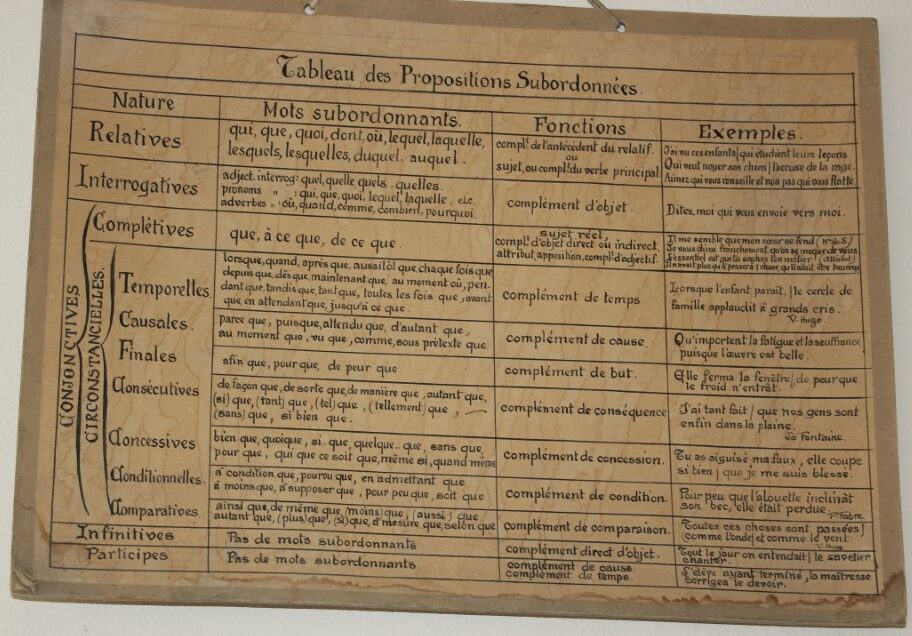 Tableau des Propositions Subordonnées.
Nature
Mots subordonnants.
Fonctions
Exemples.
Relatives
qui, que, quoi, dont, où, lequel, laquelle,
lesquels, lesquelles, duquel, auquel.
complt de l'antécédent du relatif.
ou
sujet, ou complt du verbe principal
J'ai vu ces enfants| qui étudient leurs leçons
Qui veut noyer son chien| l'accuse de la rage.
Aimez qui vous conseille et non pas qui vous flatte.
Interrogatives
adject. interrog: quel, quelle quels, quelles.
pronoms " : qui, que, quoi, lequel, laquelle, etc.
adverbes " : où, quand, comme, combien, pourquoi.
complément d'objet.
Dites-moi qui vous envoie vers moi.
CONJONCTIVES
Complétives
que, à ce que, de ce que.
sujet réel,
complt d'objet direct ou indirect.
attribut, apposition, complt d'adjectif.
Il me semble que mon cœur se fend (Mme de S.)
Je vous dirai franchement qu'on se moque de vous
L'essentiel est que tu saches ton métier! (Attribut)
CIRCONSTANCIELLES.
Temporelles.
lorsque, quand, après que, aussitôt que, chaque fois que
depuis que, dès que, maintenant que, au moment où, pen-
dant que, tandis que, tant que, toutes les fois que, avant
que, en attendant que, jusqu'à ce que.
complément de temps
Lorsque l'enfant paraît, | le cercle de
famille applaudit à grands cris.
V. Hugo
Causales.
parce que, puisque, attendu que, d'autant que,
au moment que, vu que, comme, sous prétexte que
complément de cause.
Qu'importent la fatigue et la souffrance
puisque l'œuvre est belle.
Finales
afin que, pour que, de peur que
complément de but.
Elle ferma la fenêtre| de peur que
le froid n'entrât.
Consécutives
de façon que, de sorte que, de manière que, autant que,
(si) que, (tant) que, (tel) que, (tellement) que, —
(sans) que, si bien que.
complément de conséquence
J'ai tant fait | que nos gens sont
enfin dans la plaine.
La Fontaine.
Concessives
bien que, quoique, si.. que, quelque.. que, sans que
pour que, qui que ce soit que, même si, quand même
complément de concession.
Tu as aiguisé ma faux, elle coupe
si bien | que je me suis blessé.
Conditionnelles.
à condition que, pourvu que, en admettant que
à moins que, à supposer que, pour peu que, soit que
complément de condition.
Pour peu que l'alouette inclinât
son bec, elle était perdue.
F. Fabre.
Comparatives.
ainsi que, de même que, (moins) que, (aussi) que
autant que, (plus) que, (si) que, à mesure que, selon que
complément de comparaison.
Toutes ces choses sont passées|
(comme l'onde| et comme le vent
V. Hugo
Infinitives
Pas de mots subordonnants
complément direct d'objet.
Tout le jour on entendait| le savetier
chanter.
Participes
Pas de mots subordonnants
complément de cause
complément de temps.
L'élève ayant terminé, la maîtresse
corrigea le devoir.